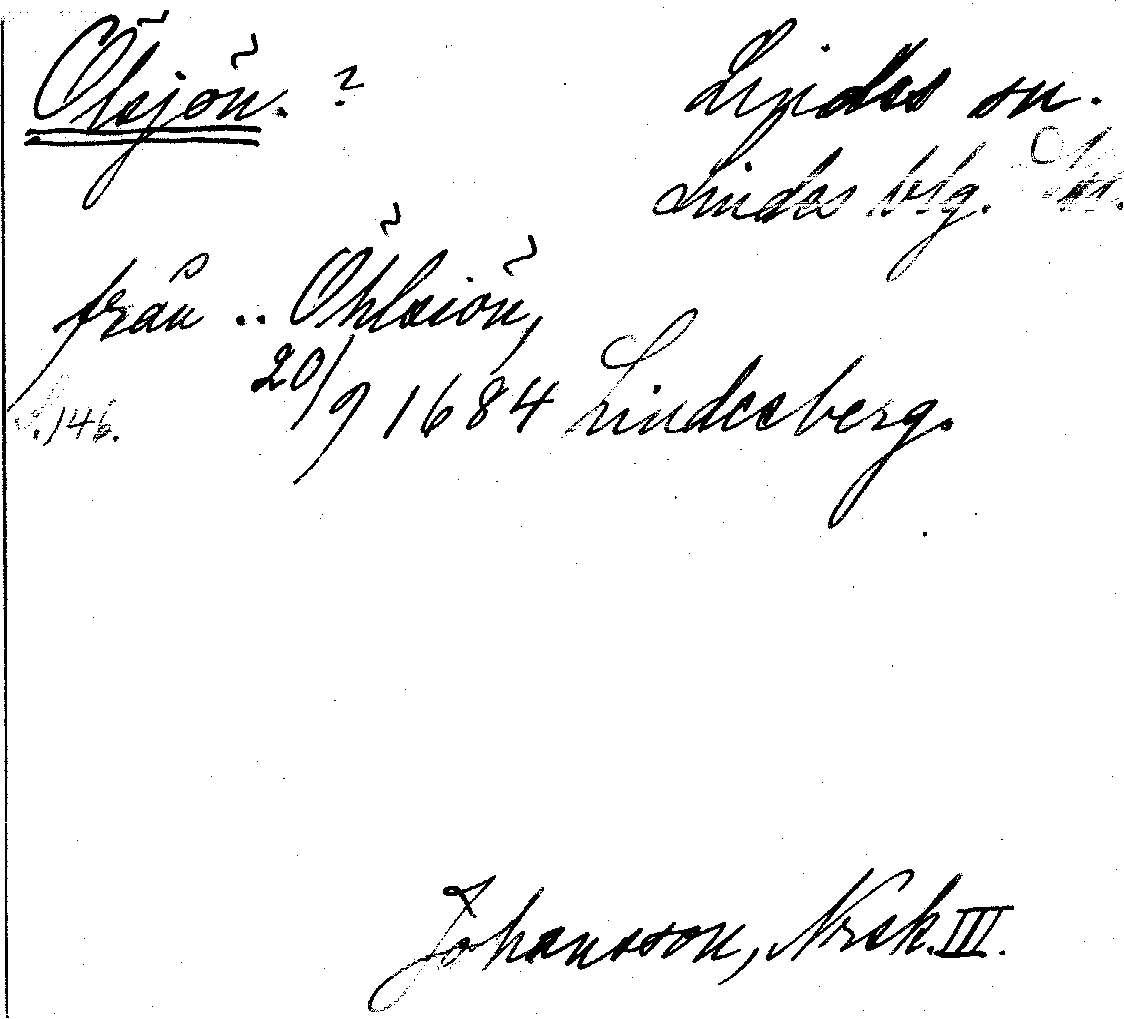 Öhsjön. ? Lindes sn.
Lindes blg. Ör.
från .. Öhlsiön,
20/9 1684 Lindesberg.
S. 146.
Johansson, Nrsk. III.